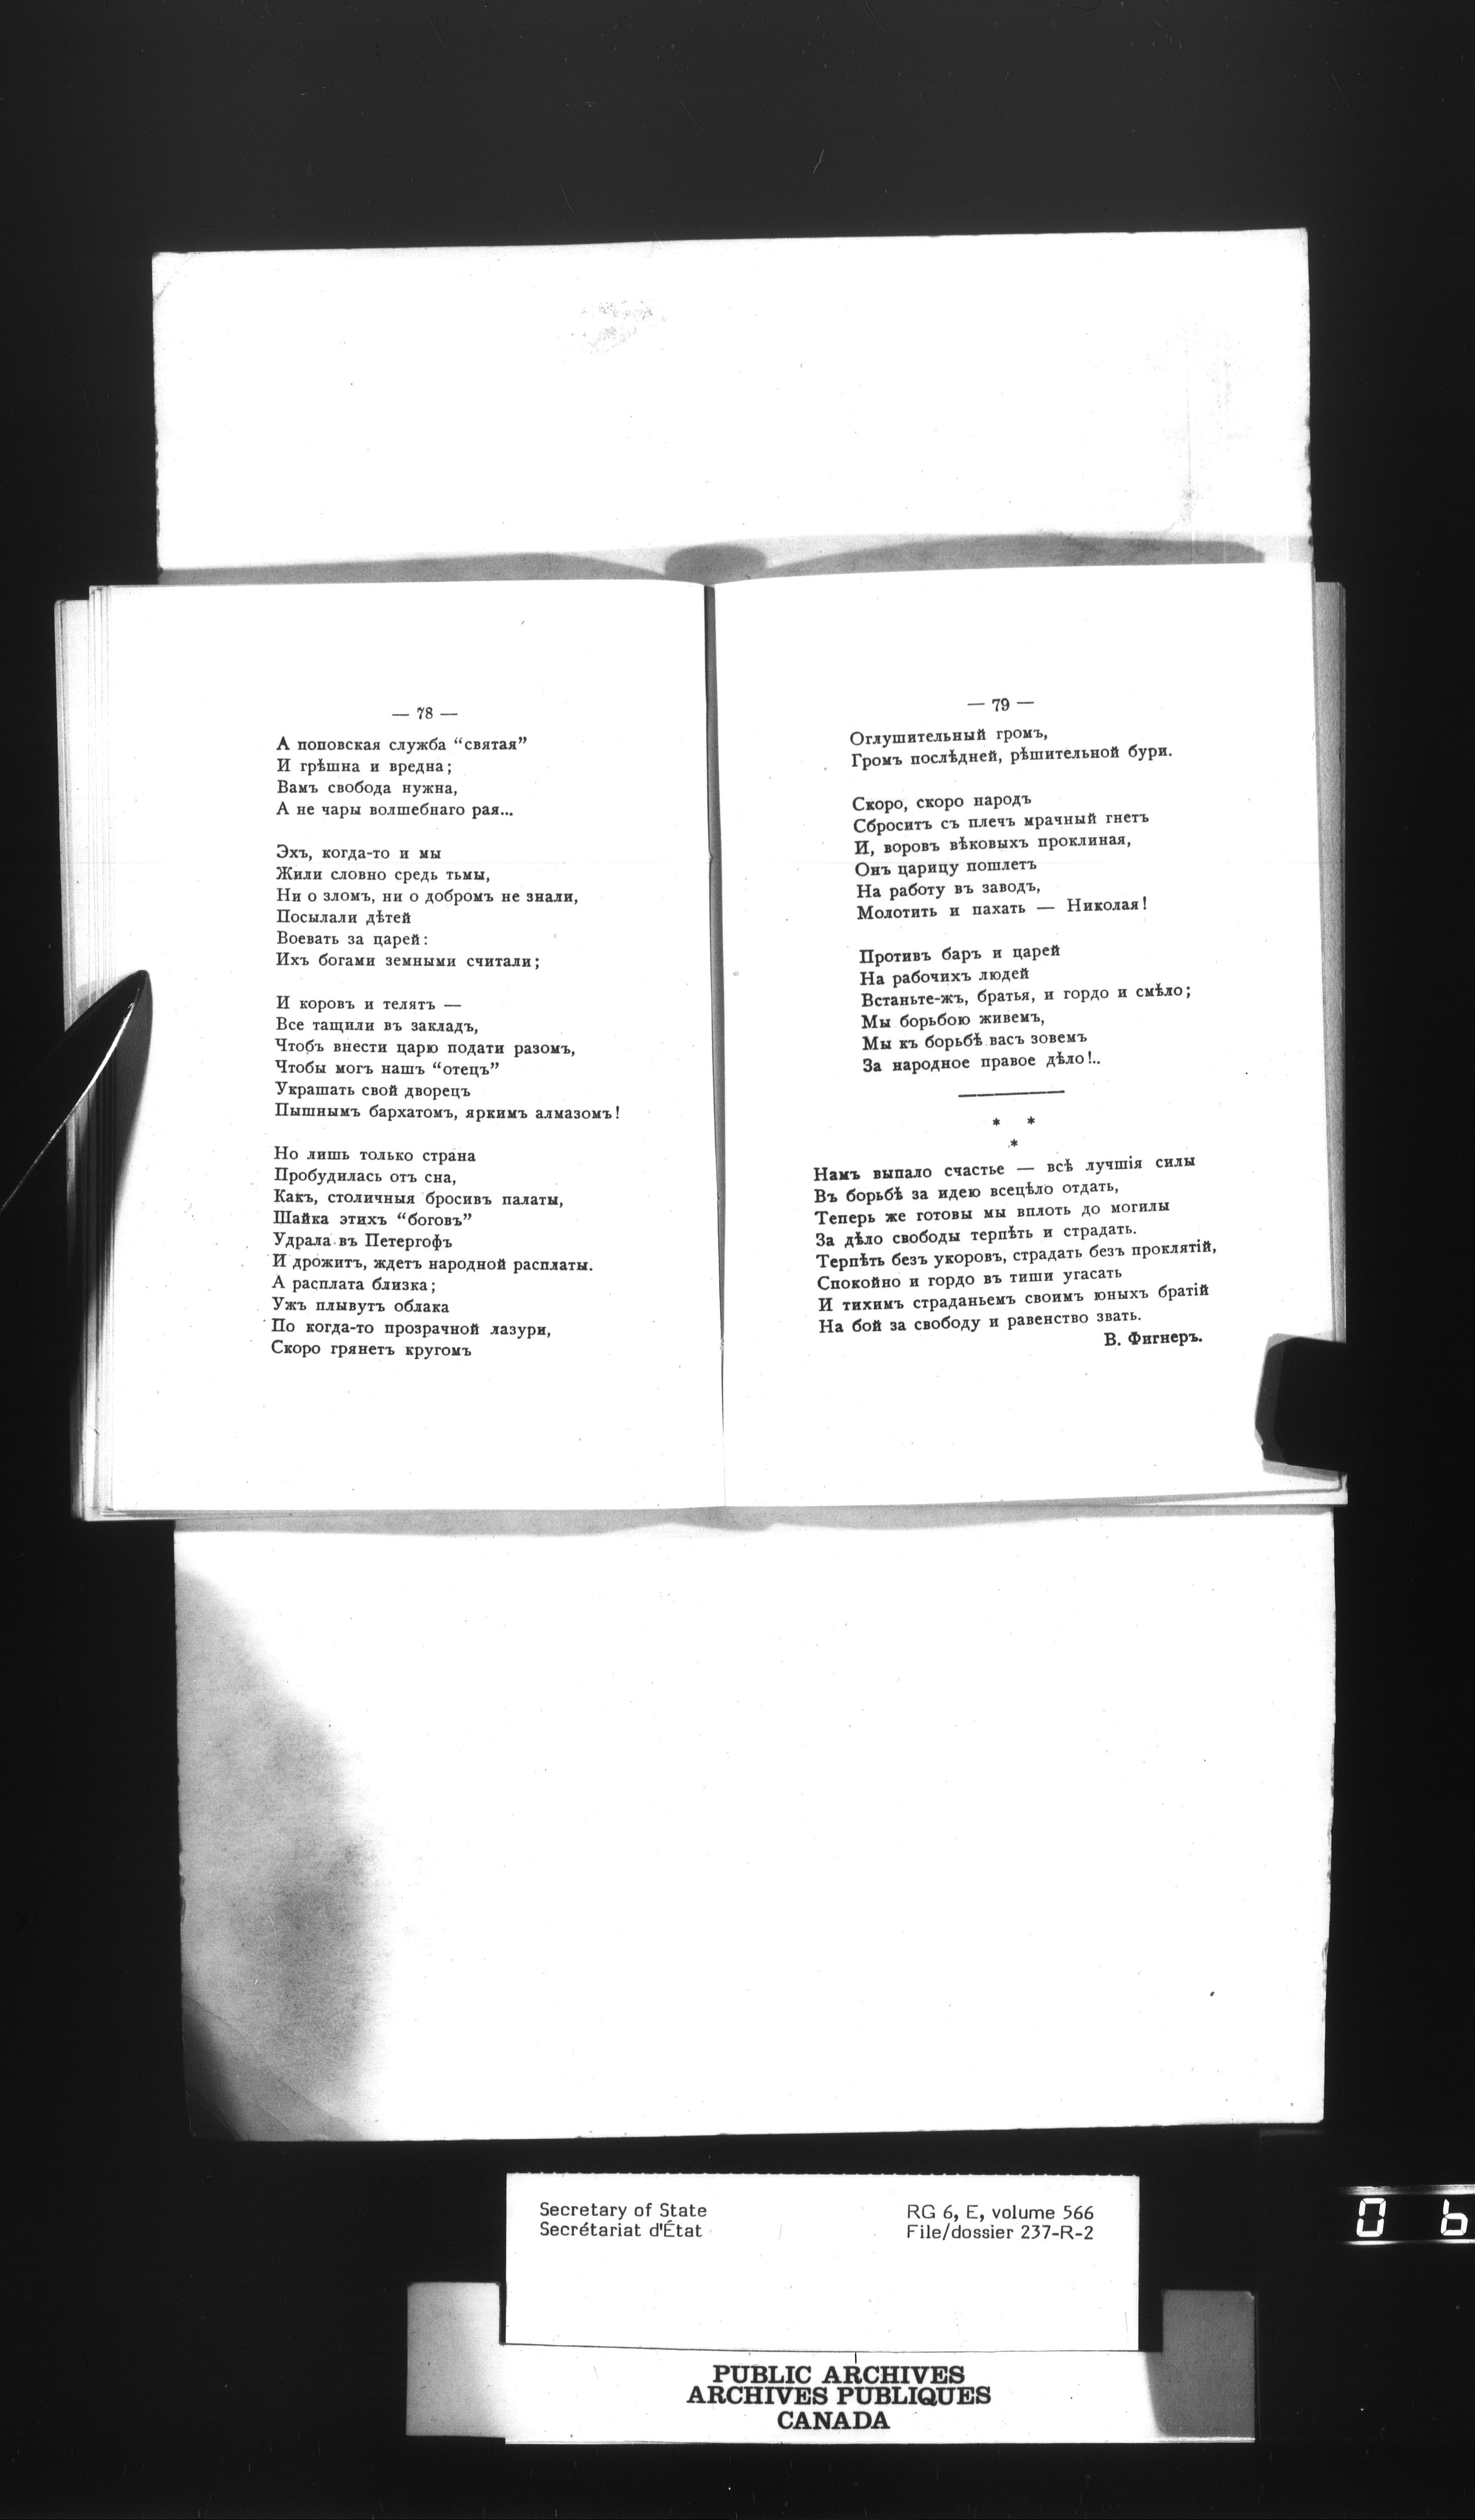 — 78 —
А поповская служба “святая”
И грѣшна и вредна;
Вамъ свобода нужна,
А не чары волшебнаго рая...
Эхъ, когда-то и мы
Жили словно средь тьмы,
Ни о зломъ, ни о добромъ не знали,
Посылали дѣтей
Воевать за царей:
Ихъ богами земными считали;
И коровъ и телятъ —
Все тащили въ закладъ,
Чтобъ внести царю подати разомъ,
Чтобы могъ нашъ “отецъ”
Украшать свой дворецъ
Пышнымъ бархатомъ, яркимъ алмазомъ!
Но лишь только страна
Пробудилась отъ сна,
Какъ, столичныя бросивъ палаты,
Шайка этихъ “боговъ”
Удрала въ Петергофъ
И дрожитъ, ждетъ народной расплаты.
А расплата близка;
Ужъ плывутъ облака
По когда-то прозрачной лазури,
Скоро грянетъ кругомъ
— 79 —
Оглушительный громъ,
Громъ послѣдней, рѣшительной бури.
Скоро, скоро народъ
Сброситъ съ плечъ мрачный гнетъ
И, воровъ вѣковыхъ проклиная,
Онъ царицу пошлетъ
На работу въ заводъ,
Молотить и пахать — Николая!
Противъ баръ и царей
На рабочихъ людей
Встаньте-жъ, братья, и гордо и смѣло;
Мы борьбою живемъ,
Мы къ борьбѣ васъ зовемъ
За народное правое дѣло!..
* *
*
Намъ выпало счастье — всѣ лучшія силы
Въ борьбѣ за идею всецѣло отдать,
Теперь же готовы мы вплоть до могилы
За дѣло свободы терпѣть и страдать.
Терпѣть безъ укоровъ, страдать безъ проклятій,
Спокойно и гордо въ тиши угасать
И тихимъ страданьемъ своимъ юныхъ братій
На бой за свободу и равенство звать.
В. Фигнеръ.
Secretary of State RG 6, E, volume 566
Secrétariat d'État File/dossier 237-R-2
PUBLIC ARCHIVES
ARCHIVES PUBLIQUES
CANADA